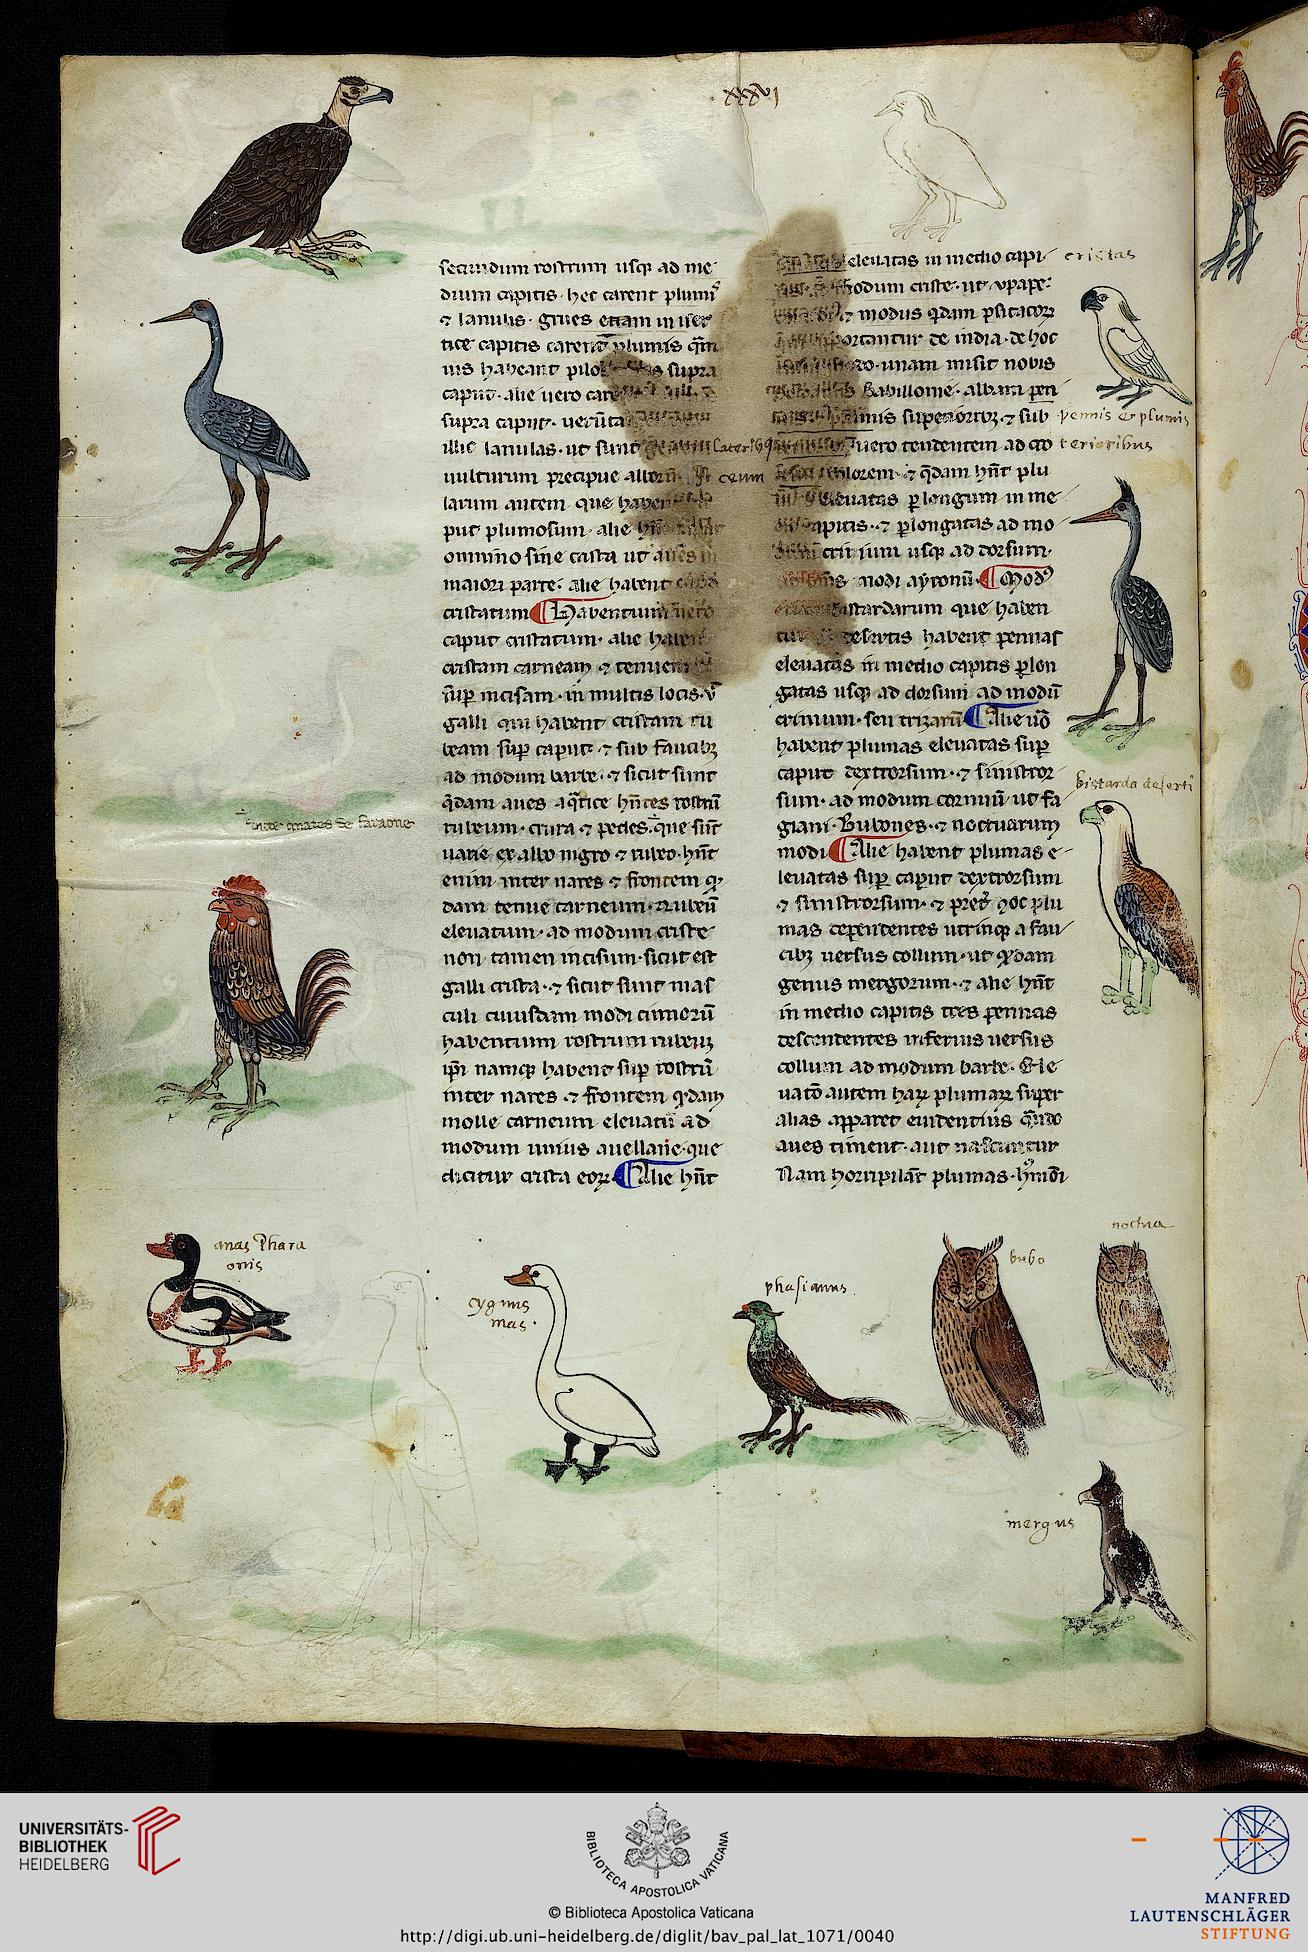 xxvj
secundum rostrum usq; ad me
dium capitis · hec carent plumis
⁊ lanulis · grues etiam in uer
tice capitis carent plumis
uis habeant supra
caput · alie uero
supra caput ·
illic lanulas · ut sunt
uulturum precipue alborum
larum autem que
put plumosum · alie
omnino sine crista ut aues
maiori parte · alie habent
cristatum ¶ Habentium uero
caput cristatum · alie
cristam carneam ⁊ tenuem
sup incisam · in multis locis · ut
galli qui habent cristam ru
beam sup caput · ⁊ sub faucibꝫ
ad modum barbe · ⁊ sicut sunt
q̄dam aues aq̄tice hn̄tes rostrū
rubeum · crura ⁊ pedes · que sūt
uarie ex albo nigro ⁊ rubeo · hn̄t
enim inter nares ⁊ frontem
dam tenue carneum · ⁊ rubeū
eleuatum · ad modum criste
non tamen incisum · sicut est
galli crista · ⁊ sicut sunt mas
culi cuiusdam modi cimorū
habentium rostrum rubeum
ip̄i namq; habent sup rostrū
inter nares ⁊ frontem q̄dam
molle carneum eleuatū ad
modum unius auellane · que
dicitur crista eoꝝ ¶ Alie hn̄t
eleuatas in medio capi-
modum criste · ut upape ·
⁊ modus q̄dam psitacoꝝ
portantur de india · de hoc
unam misit nobis
Babillonie · albam
superioribꝫ · ⁊ sub
uero tendentem ad cro
colorem · ⁊ q̄dam hn̄t plu
eleuatas p longum in me
capitis · ⁊ plongatas ad mo
crinium usq; ad dorsum ·
modi ayronū · ¶ Modꝰ
bistardarum que haben
tur desertis habent pennas
eleuatas in medio capitis plon
gatas usq; ad dorsum ad modū
crinium · seu trizarū ¶ Alie uō
habent plumas eleuatas sup
caput dextrorsum · ⁊ sinistror
sum · ad modum cornuū ut fa
giani · Bubones · ⁊ noctuarum
modi ¶ Alie habent plumas e-
leuatas sup caput dextrorsum
⁊ sinistrorsum · ⁊ preter hoc plu
mas dependentes utrinq; a fau
cibꝫ uersus collum · ut q̄dam
genus mergorum · ⁊ alie hn̄t
in medio capitis tres pennas
descendentes inferius uersus
collum ad modum barbe · Ele
uatō autem haꝝ plumaꝝ super
alias apparet euidentius qn̄do
aues timent · aut nascuntur
Nam horripilāt plumas ·
cristas
pennis & plumis
terioribus
ceum
bistarda deserti
anates de faraone
anas Phara
onis
cygnus
mas ·
phasianus
bubo
noctua
mergus
UNIVERSITÄTS-
BIBLIOTHEK
HEIDELBERG
BIBLIOTECA APOSTOLICA VATICANA
© Biblioteca Apostolica Vaticana
http://digi.ub.uni-heidelberg.de/diglit/bav_pal_lat_1071/0040
MANFRED
LAUTENSCHLÄGER
STIFTUNG